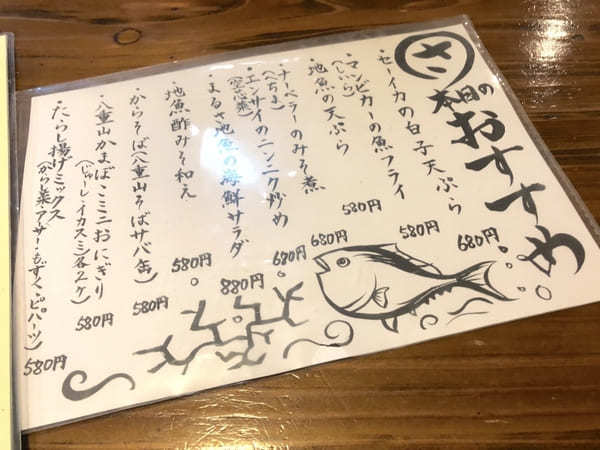 さ
本日のおすすめ
・セーイカの白子天ぷら 680円
・マンビカーの魚フライ 580円
(しいら)
・地魚の天ぷら 580円
・ナーベラーのみそ煮 680円
(へちま)
・エンサイのニンニク炒め 680円
(空心菜)
・まるさ地魚の海鮮サラダ 880円
・地魚酢みそ和え 580円
・からそば(八重山そばサバ缶) 580円
・八重山かまぼこミニおにぎり 580円
(じゅーしー・イカスミ各2ケ)
・たらし揚げミックス
(からし菜アーサーもずく・ピパーツ) 580円